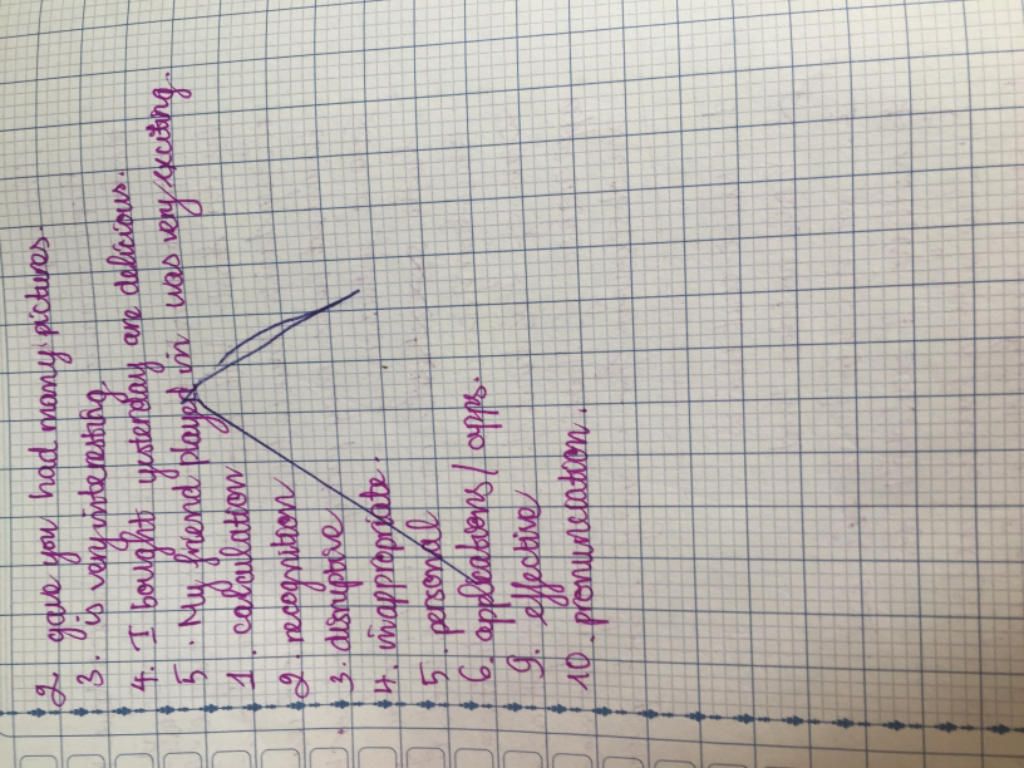 2. gave you had many pictures.
3. is very interesting
4. I bought yesterday are delicious.
5. My friend played in was very exciting.
1. calculation
2. recognition
3. disruptive
4. inappropriate.
5. personal
6. applications / apps.
9. effective
10. pronunciation.